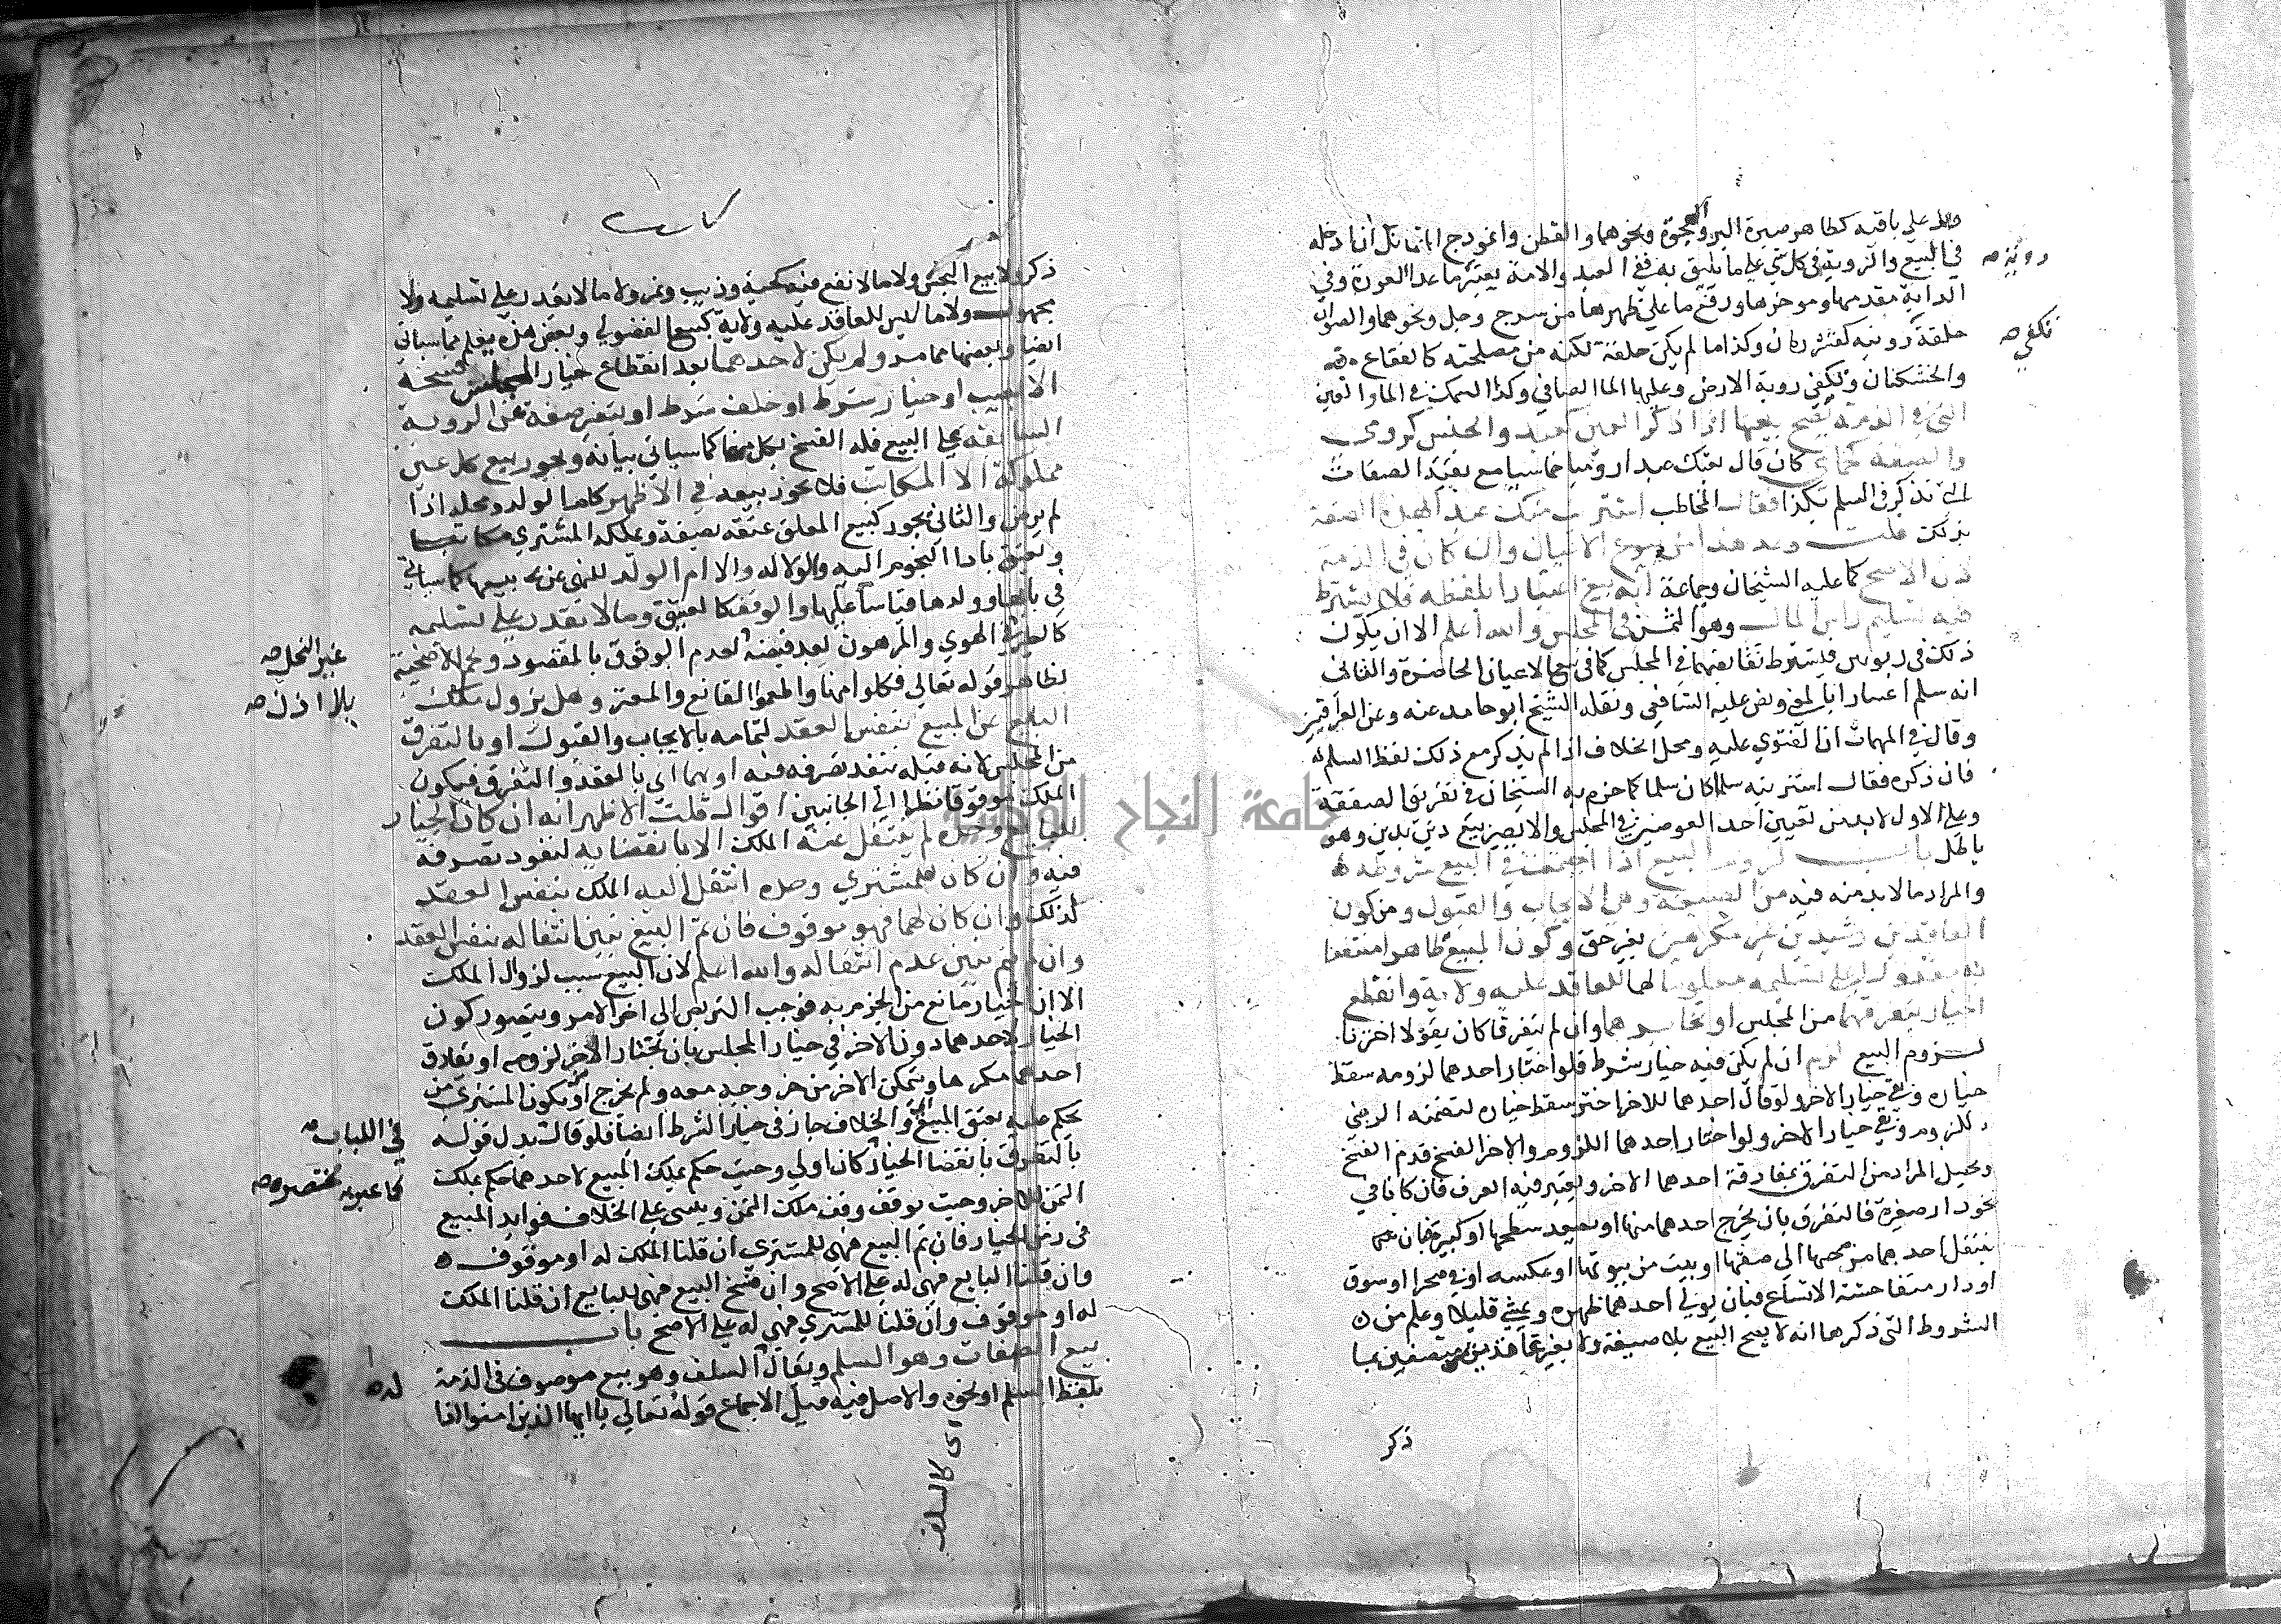 دالا علي باقيه كظاهر صبرة البر والعجوة ونحوهما والقطن وانموذج المتماثل ان ادخله
في البيع والروية في كل شي علي ما يليق به ففي العبد والامة يعتبر ما عدا العورة وفي
رويته صح
الدابة مقدمها وموخرها ورفع ما علي ظهرها من سرج وجل ونحوهما والصوان
خلقة رويته كقشر رمان وكذا ما لم يكن خلقة لكنه من مصلحته كالفقاع
تكفي صح
والخشكنان وتكفي روية الارض وعليها الما الصافي وكذا السمك في الما والعين
التي في الذمة يصح بيعها اذا ذكر العين كعبد والجنس كرومي
والصفة كخماسي كان قال بعتك عبدا روميا خماسيا مع بقية الصفات
التي تذكر في السلم بكذا فقال المخاطب اشتريت منك عبدا بهذه الصفة
بذلك قلت وبعد هذا من بيوع الاعيان وان كان في الذمة
لان الاصح كما عليه الشيخان وجماعة انه بيع اعتبارا بلفظه فلا يشترط
فيه تسليم راس المال وهو الثمن في المجلس والله اعلم الا ان يكون
ذلك في ربوي فيشترط تقابضهما في المجلس كما في بيع الاعيان الحاضرة والثاني
انه سلم اعتبارا بالمعني ونص عليه الشافعي ونقله الشيخ ابو حامد عنه وعن العراقيين
وقال في المهمات ان الفتوي عليه ومحل الخلاف اذا لم يذكر مع ذلك لفظ السلم
فان ذكره فقال اشتريته سلما كان سلما كما جزم به الشيخان في تفريق الصفقة
وعلي الاول لابد من تعيين احد العوضين في المجلس والا يصير بيع دين بدين وهو
باطل باب لزوم البيع اذا اجتمعت في البيع شروطه
والمراد ما لابد منه فيه من الصيغة وهي الايجاب والقبول ومن كون
العاقدين رشيدين غير مكرهين بغير حق وكون المبيع طاهرا منتفعا
به مقدورا علي تسليمه معلوما لهما للعاقد عليه ولاية وانقطع
الخيار بتفرقهما من المجلس او تخايرهما وان لم يتفرقا كان يقولا اخترنا
لزوم البيع لزم ان لم يكن فيه خيار شرط فلو اختار احدهما لزومه سقط
خياره وبقي خيار الاخر ولو قال احدهما للاخر اختر سقط خياره لتضمنه الرضي
باللزوم وبقي خيار الاخر ولو اختار احدهما اللزوم والاخر الفسخ قدم الفسخ
ويحصل المراد من التفرق بمفارقة احدهما الاخر ويعتبر فيه العرف فان كانا في
نحو دار صغيرة فالتفرق بان يخرج احدهما منها او يصعد سطحها او كبيرة فبان
ينتقل احدهما من صحنها الي صفتها او بيت من بيوتها او عكسه او في صحرا او سوق
او دار متفاحشة الاتساع فبان يولي احدهما ظهره ويمشي قليلا وعلم من
الشروط التي ذكرها انه لا يصح البيع بلا صيغة ولا بغير عاقدين متصفين بما
ذكر
ذكر ولا بيع النجس ولا ما لا نفع فيه كحية وذيب ونمر ولا ما لا يقدر علي تسليمه ولا
مجهول ولا ما ليس للعاقد عليه ولاية كبيع الفضولي وبعض هذه يعلم مما سياتي
ايضا وبعضها مما مر ولم يكن لاحدهما بعد انقطاع خيار المجلس فسخه
الا بعيب او خيار شرط او خلف شرط او بتغير صفة عن الروية
السابقة علي البيع فله الفسخ بكل منها كما سياتي بيانه ويجوز بيع كل عين
مملوكة الا المكاتب فلا يجوز بيعه في الاظهر كام الولد ومحله اذا
لم يرض والثاني يجوز كبيع المعلق عتقه بصفة ويملكه المشتري مكاتبا
ويعتق بادا النجوم اليه والولا له والا ام الولد للنهي عن بيعها كما سياتي
في بابها وولدها قياسا عليها والوقف كالعتيق وما لا نقدر علي تسليمه
كالطير في الهوي والمرهون بعد قبضه لعدم الوثوق بالمقصود ولحم الاضحية
غير النحل صح
بلا اذن صح
لظاهر قوله تعالي فكلوا منها واطعموا القانع والمعتر وهل يزول ملك
البايع عن المبيع بنفس العقد لتمامه بالايجاب والقبول او بالتفرق
من المجلس لانه قبله ينفذ تصرفه فيه او بهما اي بالعقد والتفرق فيكون
الملك موقوفا نظرا الي الجانبين اقوال قلت الاظهر انه ان كان الخيار
للبايع وحده لم ينتقل عنه الملك الا بانقضايه لنفوذ تصرفه
فيه وان كان للمشتري وحده انتقل اليه الملك بنفس العقد
لذلك وان كان لهما فهو موقوف فان تم البيع تبين انتقاله بنفس العقد
وان لم يتم تبين عدم انتقاله والله اعلم لان البيع سبب لزوال الملك
الا ان الخيار مانع من الجزم به فوجب التربص الي اخر الامر ويتصور كون
الخيار لاحدهما دون الاخر في خيار المجلس بان يختار الاخر لزومه او يفارق
احدهما مكرها ويتمكن الاخر من خروجه معه ولم يخرج او يكون المشتري من
يحكم عليه بعتق المبيع والخلاف جاز في خيار الشرط ايضا فلو قال بدل قوله
في اللباب صح
بالتفرق بانقضا الخيار كان اولي وحيث حكم بملك المبيع لاحدهما حكم بملك
كما عبر به مختصره صح
الثمن للاخر وحيث توقف وقف ملك الثمن وينبني علي الخلاف فوايد المبيع
في زمن الخيار فان تم البيع فهي للمشتري ان قلنا الملك له او موقوف
وان قلنا للبايع فهي له علي الاصح وان فسخ البيع فهي للبايع ان قلنا الملك
له او موقوف وان قلنا للمشتري فهي له علي الاصح باب
بيع الصفات وهو السلم ويقال السلف وهو بيع موصوف في الذمة
بلفظ السلم او نحوه والاصل فيه قبل الاجماع قوله تعالي يا ايها الذين امنوا اذا
اي كالسلف
جامعة النجاح الوطنية